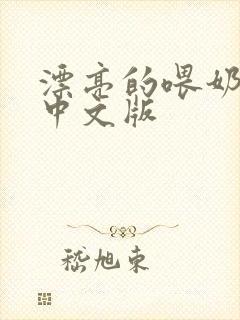 漂亮的喂奶
中文版
嵇旭东